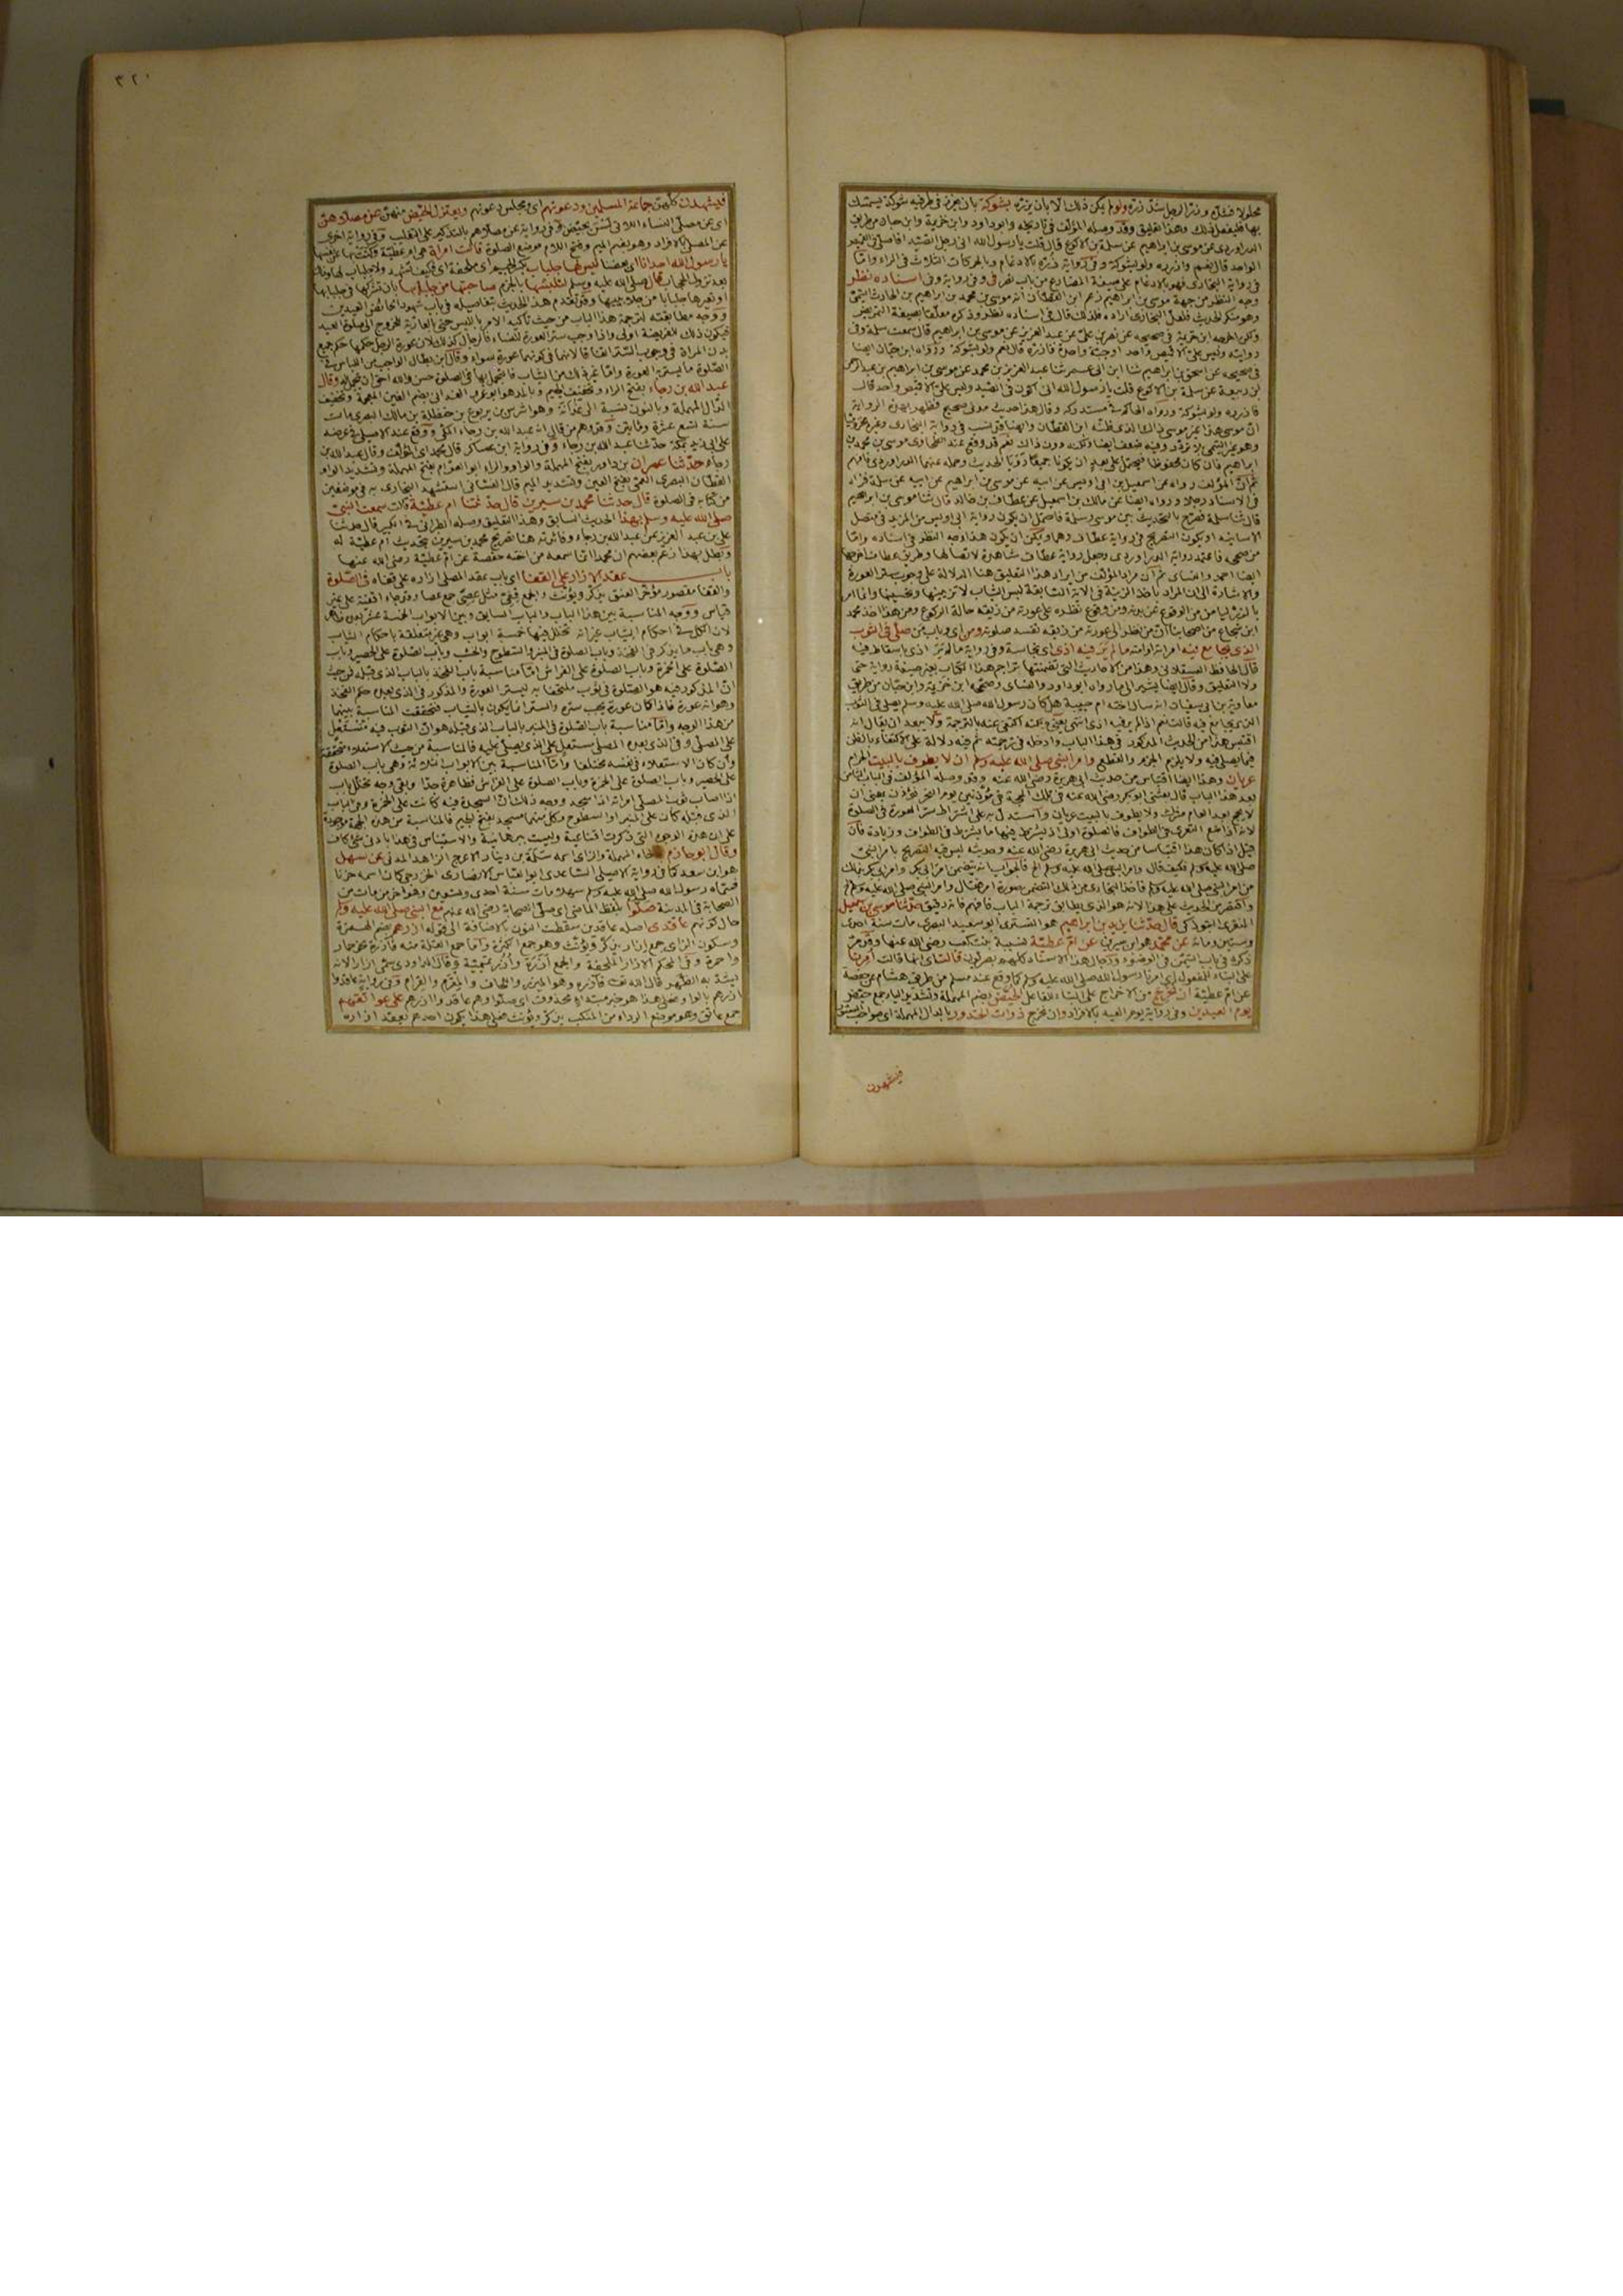 محلولا فشدّه وزرّ الرجل شدّ زرّه ولو لم يكن ذلك الا بان يزرّه بشوكة بان يغرز في طرفيه شوكة يستمسك
بها فليفعل ذلك وهذا التعليق وقد وصله المؤلف في تاريخه وابو داود وابن خزيمة وابن حبان من طريق
الدراوردي عن موسى بن ابراهيم عن سلمة بن الاكوع قال قلت يا رسول الله اني رجل اتصيد افاصلي في القميص
الواحد قال نعم وازرره ولو بشوكة وفي رواية يزره بالادغام وبالحركات الثلاث في الراء واما
في رواية البخاري فهو بالادغام على صيغة المضارع من باب نصر وفي رواية وفي اسناده نظر
وجه النظر من جهة موسى بن ابراهيم زعم ابن القطان انه موسى بن محمد بن ابراهيم بن الحارث التيمي
وهو منكر الحديث فلعل البخاري اراده فلذلك قال في اسناده نظر وذكره معلقا بصيغة التمريض
ولكن اخرجه ابن خزيمة في صحيحه عن نصر بن علي عن عبد العزيز عن موسى بن ابراهيم قال سمعت سلمة وفي
روايته وليس عليّ الا قميص واحد او جبة واحدة فازره قال نعم ولو بشوكة ورواه ابن حبان ايضا
في صحيحه عن اسحق بن ابراهيم ثنا ابن ابي عمر ثنا عبد العزيز بن محمد عن موسى بن ابراهيم بن عبد الرحمن
بن ربيعة عن سلمة بن الاكوع قلت يا رسول الله اني اكون في الصيد وليس عليّ الا قميص واحد قال
فازرره ولو بشوكة ورواه الحاكم في مستدركه وقال هذا حديث مدني صحيح فظهر بهذه الرواية
ان موسى هذا غير موسى ذاك الذي ظنّه ابن القطان
ابراهيم فان كان محفوظا فيحتمل على بعد ان يكونا جميعا رويا الحديث وحمله عنهما الدراوردي
ثم ان المؤلف رواه عن اسمعيل بن ابي اويس عن ابيه عن موسى بن ابراهيم عن ابيه عن سلمة فزاد
في الاسناد رجلا ورواه ايضا عن مالك بن اسمعيل عن عطاف بن خالد قال ثنا موسى بن ابراهيم
قال ثنا سلمة فصرح بالتحديث بين موسى وسلمة فاحتمل ان يكون رواية ابي اويس من المزيد في متصل
الاسانيد او يكون التصريح في رواية عطاف وهما ويمكن ان يكون هذا وجه النظر في اسناده واما
من صححه فاعتمد رواية الدراوردي وجعل رواية عطاف شاهدة لاتصالها وطريق عطاف اخرجها
ايضا احمد والنسائي ثم ان مراد المؤلف من ايراد هذا التعليق هنا الدلالة على وجوب ستر العورة
والاشارة الى ان المراد باخذ الزينة في الاية السابقة لبس الثياب لا تزيينها وتحسينها وانما امر
بالزر ليأمن من الوقوع عن بدنه ومن وقوع نظره على عورته من زيقه حالة الركوع ومن هذا اخذ محمد
ابن شجاع من اصحابنا ان من نظر الى عورته من زيقه تفسد صلوته ومن اي وباب من صلى في الثوب
الذي يجامع فيه امراته او امته ما لم ير فيه اذى اي نجاسة وفي رواية ما لم ير اذى باسقاط فيه
قال الحافظ العسقلاني وهذا من الاحاديث التي تضمنتها تراجم هذا الكتاب بغير صيغة رواية حتى
ولا التعليق وقال ايضا يشير الى ما رواه ابو داود والنسائي وصححه ابن خزيمة وابن حبان من طريق
معاوية بن ابي سفيان انه سأل اخته ام حبيبة هل كان رسول الله صلى الله عليه وسلم يصلي في الثوب
الذي يجامع فيه قالت نعم اذا لم ير فيه اذى
اقتبس هذا من الحديث المذكور في هذا الباب وادخله في ترجمته ثم فيه دلالة على الاكتفاء بالظن
فيما يصلي فيه ولا يلزم الجزم والقطع وامر النبي صلى الله عليه وسلم ان لا يطوف بالبيت الحرام
عريان وهذا ايضا اقتباس من حديث ابي هريرة رضي الله عنه وقد وصله المؤلف في الباب الثامن
بعد هذا الباب قال بعثني ابو بكر رضي الله عنه في تلك الحجة في مؤذنين يوم النحر نؤذن بمنى ان
لا يحج بعد العام مشرك ولا يطوف بالبيت عريان واستدل به على اشتراط ستر العورة في الصلوة
لانه اذا منع التعري في الطواف فالصلوة اولى اذ يشترط فيها ما يشترط في الطواف وزيادة فان
قيل اذا كان هذا اقتباسا من حديث ابي هريرة رضي الله عنه وحديثه ليس فيه التصريح بامر النبي
صلى الله عليه وسلم فكيف قال وامر النبي صلى الله عليه وسلم الخ فالجواب انه يتضمن امر ابي بكر وامر ابي بكر بذلك
من امر النبي صلى الله عليه وسلم
واقتصر من الحديث على هذا لانه هو الذي يطابق ترجمة الباب فافهم فانه دقيق حدثنا موسى بن اسمعيل
المنقري التبوذكي قال حدثنا يزيد بن ابراهيم هو التستري ابو سعيد البصري مات سنة احدى
وستين ومائة عن محمد هو ابن سيرين عن ام عطية نسيبة بنت كعب رضي الله عنها وقد مر
ذكره في باب التيمن في الوضوء ورجال هذا الاسناد كلهم بصريون قالت اي انها قالت امرنا
على البناء للمفعول اي امرنا رسول الله صلى الله عليه وسلم كما وقع عند مسلم من طريق هشام عن حفصة
عن ام عطية ان نخرج من الاخراج على البناء للفاعل الحيّض بضم المهملة وتشديد الياء جمع حيض
يوم العيدين وفي رواية يوم العيد بالافراد وان نخرج ذوات الخدور بالدال المهملة اي صواحب الستور
فيشهدن
٣٢٠
فيشهدن كلهن جماعة المسلمين ودعوتهم اي ومجلس دعوتهم ويعتزل الحيض منهن عن مصلاهن
اي عن مصلى النساء اللاتي لسن بحيض وفي رواية عن مصلاهم بالتذكير على التغليب وفي رواية اخرى
عن المصلى بالافراد وهو بضم الميم وفتح اللام موضع الصلوة قالت امرأة هي ام عطية وكنت بها عن نفسها
يا رسول الله احدانا اي بعضنا ليس لها جلباب بكسر الجيم اي ملحفة اي فكيف تشهد ولا جلباب لها
بعد نزول الحجاب قال صلى الله عليه وسلم لتلبسها بالجزم صاحبتها من جلبابها بان تشركها في جلبابها
او تعيرها جلبابا من جلابيبها وقد تقدم هذا الحديث بتفاصيله في باب شهود الحائض العيدين
ووجه مطابقته لترجمة هذا الباب من حيث تأكيد الامر باللبس حتى بالعارية للخروج الى صلوة العيد
فيكون ذلك للفريضة اولى واذا وجب ستر العورة للنساء فالرجال كذلك لان عورة الرجل حكمها حكم جميع
بدن المرأة في وجوب الستر اتفاقا لانهما في كونهما عورة سواء وقال ابن بطال الواجب من اللباس في
الصلوة ما يستر به العورة واما غير ذلك من الثياب فالتجمل بها في الصلوة حسن والله احق ان يتجمل له وقال
عبد الله بن رجاء بفتح الراء وتخفيف الجيم وبالمد هو ابو عمرو الغداني بضم الغين المعجمة وتخفيف
الدال المهملة وبالنون نسبة الى غدانة وهو اشرس بن يربوع بن حنظلة بن مالك البصري مات
سنة تسع عشرة ومائتين وقد وهم من قال انه عبد الله بن رجاء المكي ووقع عند الاصيلي في عرضه
على ابي زيد بمكة حدثنا عبد الله بن رجاء وفي رواية ابن عساكر قال محمد اي المؤلف وقال عبد الله بن
رجاء حدثنا عمران بن داور بفتح المهملة والواو والراء ابو العوام بفتح المهملة وتشديد الواو
القطان البصري العمي بفتح العين وتشديد الميم قال الغساني استشهد البخاري به في موضعين
من كتابه في الصلوة قال حدثنا محمد بن سيرين قال حدثتنا ام عطية قالت سمعت النبي
صلى الله عليه وسلم بهذا الحديث السابق وهذا التعليق وصله الطبراني في الكبير قال حدثنا
علي بن عبد العزيز عن عبد الله بن رجاء وفائدته هنا تصريح محمد بن سيرين بتحديث ام عطية له
وبطل بهذا زعم بعضهم ان محمدا انما سمعه من اخته حفصة عن ام عطية رضي الله عنها
باب عقد الازار على القفا اي باب عقد المصلي ازاره على قفاه في الصلوة
والقفا مقصور مؤخر العنق يذكر ويؤنث والجمع قفيّ مثل عصيّ جمع عصا وقد جاء اقفية على غير
قياس ووجه المناسبة بين هذا الباب والباب السابق وبين الابواب الخمسة عشر
لان الكل في احكام الثياب غير انه تخلل فيها خمسة ابواب وهي غير متعلقة باحكام الثياب
وهي باب ما يذكر في الفخذ وباب الصلوة في المنبر والسطوح والخشب وباب الصلوة على الحصير وباب
الصلوة على الخمرة وباب الصلوة على الفراش اما مناسبة باب الفخذ بالباب الذي قبله فمن حيث
ان المذكور فيه هو الصلوة في ثوب ملتحفا به ليستر العورة والمذكور في الذي بعده حكم الفخذ
وهو انه عورة فاذا كان عورة يجب ستره والستر انما يكون بالثياب فتحققت المناسبة بينهما
من هذا الوجه واما مناسبة باب الصلوة في المنبر بالباب الذي قبله هو ان الثوب فيه مستعل
على المصلي وفي الذي بعده المصلي مستعل على الذي يصلي عليه فالمناسبة من حيث الاستعلاء متحققة
وان كان الاستعلاء في نفسه مختلفا واما المناسبة بين الابواب الثلاثة وهي باب الصلوة
على الحصير وباب الصلوة على الخمرة وباب الصلوة على الفراش فظاهرة جدا وبقي وجه تخلل باب
اذا اصاب ثوب المصلي امراته اذا سجد ووجه ذلك ان السجدة فيه كانت على الخمرة وفي الباب
الذي قبله كان على المنبر او السطوح وكل منهما مسجد بفتح الجيم فالمناسبة من هذه الجهة موجودة
على ان هذه الوجوه التي ذكرت اقناعية وليست ببرهانية والاستيناس في هذا بادنى شيء كاف
وقال ابو حازم بالحاء المهملة والزاي اسمه سلمة بن دينار الاعرج الزاهد المدني عن سهل
هو ابن سعد كما في رواية الاصيلي الساعدي ابو العباس الانصاري الخزرجي كان اسمه حزنا
فسماه رسول الله صلى الله عليه وسلم سهلا مات سنة احدى وتسعين وهو آخر من مات من
الصحابة في المدينة صلوا بلفظ الماضي اي صلى الصحابة رضي الله عنهم مع النبي صلى الله عليه وسلم
حال كونهم عاقدي اصله عاقدين سقطت النون بالاضافة الى قوله ازرهم بضم الهمزة
وسكون الزاي جمع ازار يذكر ويؤنث وهو جمع الكثرة واما جمع القلة منه فآزرة نحو حمار
واحمرة وفي المحكم الازار الملحفة والجمع آزرة وأزر وقال الداودي سمي ازارا لانه
يشد به الظهر قال الله تعالى فآزره وهو الميزر واللحاف والمقرم والقرام وفي رواية عاقدوا
ازرهم بالواو فعلى هذا هو خبر مبتدأ محذوف اي صلوا وهم عاقدوا ازرهم على عواتقهم
جمع عاتق وهو موضع الرداء من المنكب يذكر ويؤنث فعلى هذا يكون احدهم يعقد ازاره